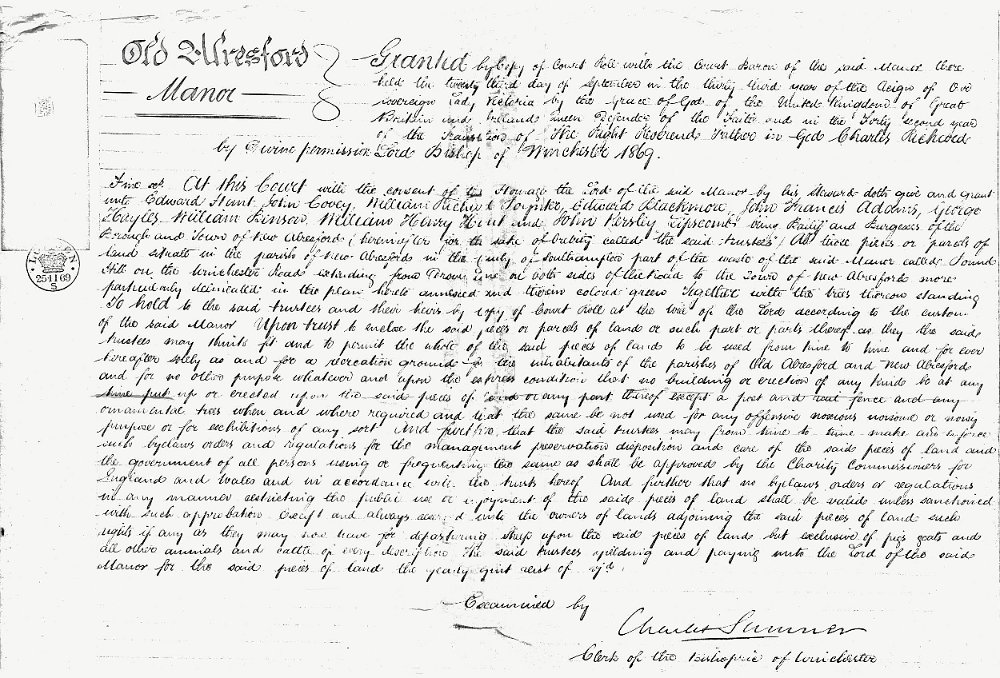 Old Alresford
Manor
Granted by Copy of Court Roll with the Court Baron of the said Manor there
held the twenty third day of September in the thirty third year of the Reign of Our
sovereign Lady Victoria by the Grace of God of the United Kingdom of Great
Britain and Ireland Queen Defender of the Faith and in the Forty second year
of the Translation of The Right Reverend Father in God Charles Richard
by Divine permission Lord Bishop of Winchester 1869.
Fine At this Court with the consent of the Steward the Lord of the said Manor by his steward doth give and grant
unto Edward Hunt John Covey, William Richard Poynter, Edward Blackmore, John Francis Adams, George
Hayles William William Henry Hunt and John Lipscomb being Bailiff and Burgesses of the
Borough and Town of New Alresford (hereinafter for the sake of brevity called the said trustees) All those pieces or parcels of
land situate in the parish of New Alresford in the County of Southampton part of the waste of the said Manor called Pound
Hill on the Winchester Road extending from on both sides of the road to the Town of New Alresford more
particularly delineated in the plan hereto annexed and therein colored green Together with the trees thereon standing
To hold to the said trustees and their heirs by copy of Court Roll at the will of the Lord according to the custom
of the said Manor Upon trust to inclose the said pieces or parcels of land or such part or parts thereof as they the said
trustees may think fit and to permit the whole of the said pieces of land to be used from time to time and for ever
hereafter solely as and for a recreation ground for the inhabitants of the parishes of Old Alresford and New Alresford
and for no other purpose whatever and upon the express condition that no building or erection of any kind be at any
time put up or erected upon the said pieces of land or any part thereof except a post and rail fence and any
ornamental trees when and where required and that the same be not used for any offensive noxious noisome or noisy
purpose or for exhibitions of any sort And further that the said trustees may from time to time make and enforce
such bylaws orders and regulations for the management preservation disposition and care of the said pieces of land and
the government of all persons using or frequenting the same as shall be approved by the Charity Commissioners for
England and Wales and in accordance with the trusts hereof And further that no bylaws orders or regulations
in any manner restricting the public use or enjoyment of the said pieces of land shall be valid unless sanctioned
with such approbation Except and always unto the owners of lands adjoining the said pieces of land such
rights if any as they may now have for depasturing sheep upon the said pieces of land but exclusive of pigs goats and
all other animals and cattle of every description The said trustees yielding and paying unto the Lord of the said
Manor for the said pieces of land the yearly quit rent of vjd.
Examined by
Charles Sumner
Clerk of the Bishopric of Winchester
25 11 69
S